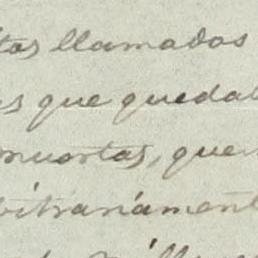 tos llamados
es que quedab
muertas, que
bitrariament